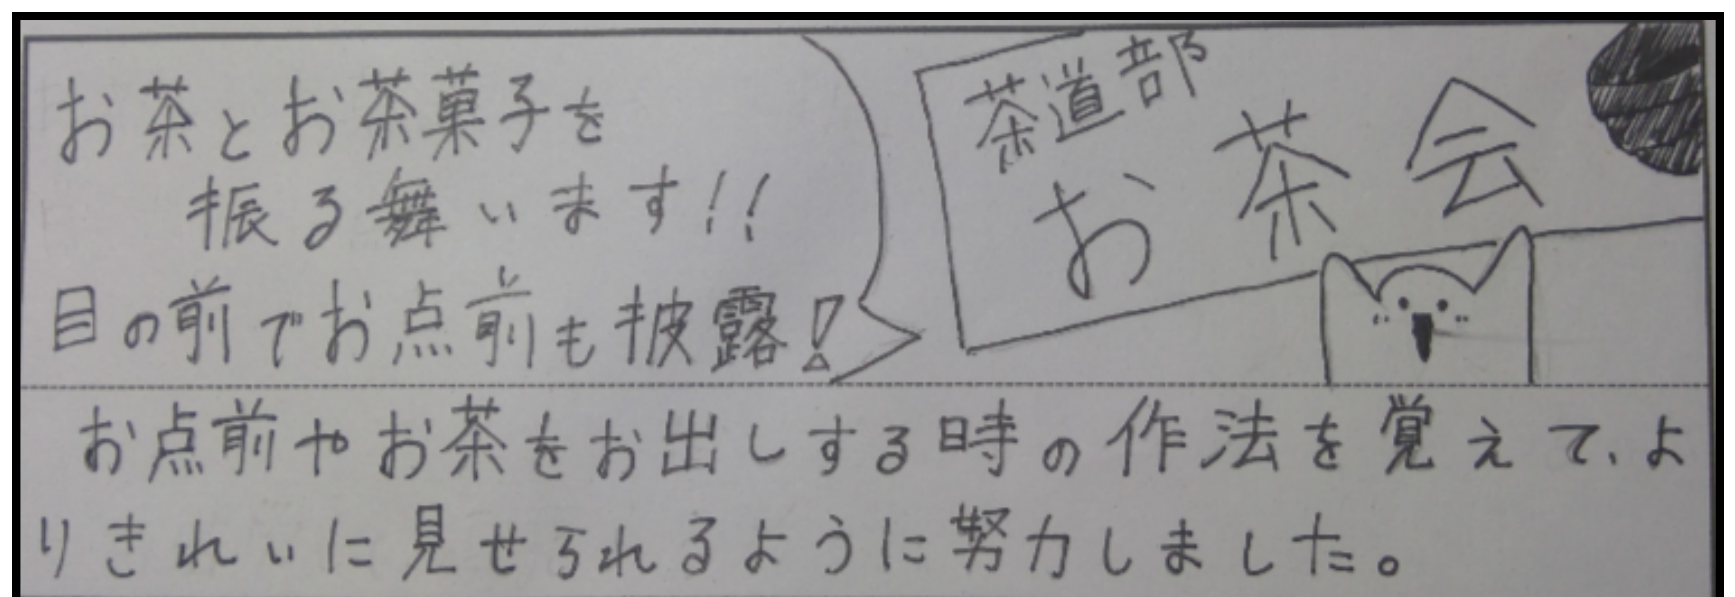 お茶とお茶菓子を
振る舞います!!
目の前でお点前も披露!
茶道部
お茶会
お点前やお茶をお出しする時の作法を覚えて、よ
りきれいに見せられるように努力しました。